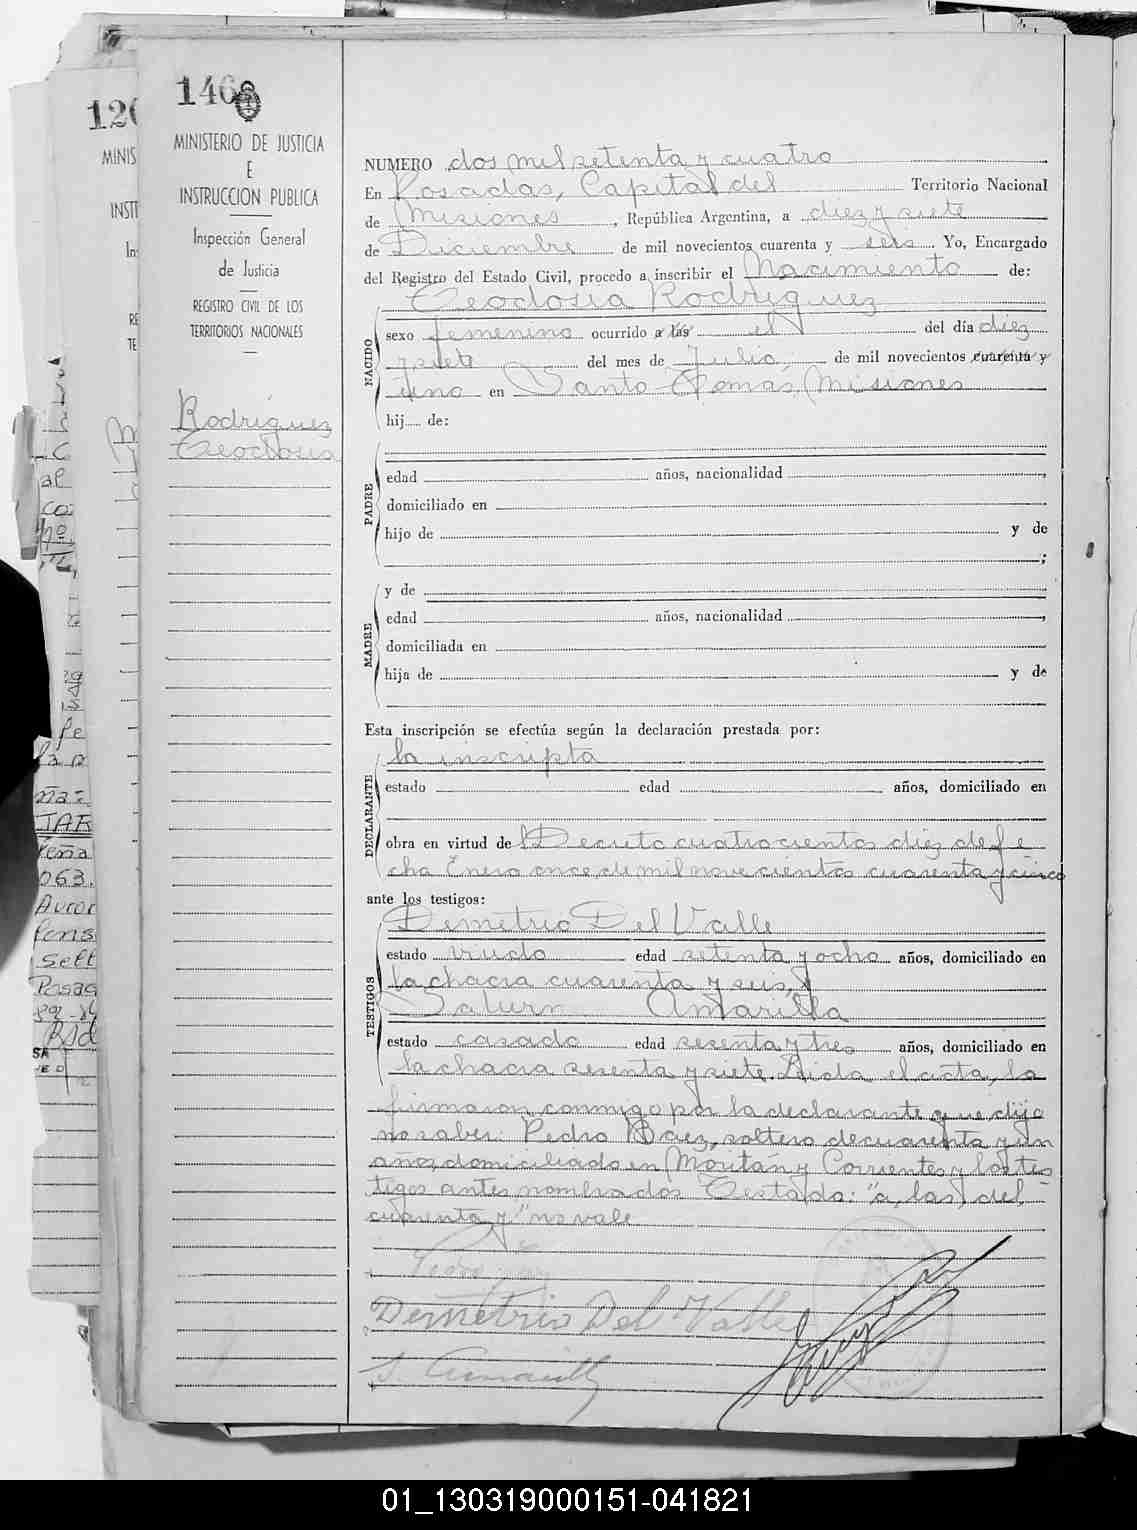 146
MINISTERIO DE JUSTICIA
E
INSTRUCCION PUBLICA
Inspección General
de Justicia
REGISTRO CIVIL DE LOS
TERRITORIOS NACIONALES
Rodríguez
Teodosia
NUMERO dos mil setenta y cuatro
En Posadas, Capital del Territorio Nacional
de Misiones, República Argentina, a diez y siete
de Diciembre de mil novecientos cuarenta y seis. Yo, Encargado
del Registro del Estado Civil, procedo a inscribir el Nacimiento de:
Teodosia Rodriguez
NACIDO
sexo femenino ocurrido a las el del día diez
y siete del mes de Julio de mil novecientos cuarenta y
uno en Santo Tomás, Misiones
hij de:
PADRE
edad años, nacionalidad
domiciliado en
hijo de y de
;
MADRE
y de
edad años, nacionalidad
domiciliada en
hija de y de
Esta inscripción se efectúa según la declaración prestada por:
DECLARANTE
la inscripta
estado edad años, domiciliado en
obra en virtud de Decreto cuatrocientos diez de fe
cha Enero once de mil novecientos cuarenta y cinco
ante los testigos:
TESTIGOS
Demetrio Del Valle
estado viudo edad setenta y ocho años, domiciliado en
la chacra cuarenta y seis, y
Saturn Amarilla
estado casado edad sesenta y tres años, domiciliado en
la chacra sesenta y siete. Leida el acta, la
firmaron conmigo por la declarante que dijo
no saber: Pedro Báez, soltero de cuarenta y un
años, domiciliado en Corrientes y los tes
tigos antes nombrados Testado: "a, las, del,
cuarenta y" no vale
Demetrio Del Valle
S. Amarilla
120
MINIS
INSTI
In
RE
TE
al
TAR
063.
Auror
Sell
Posad
01_130319000151-041821